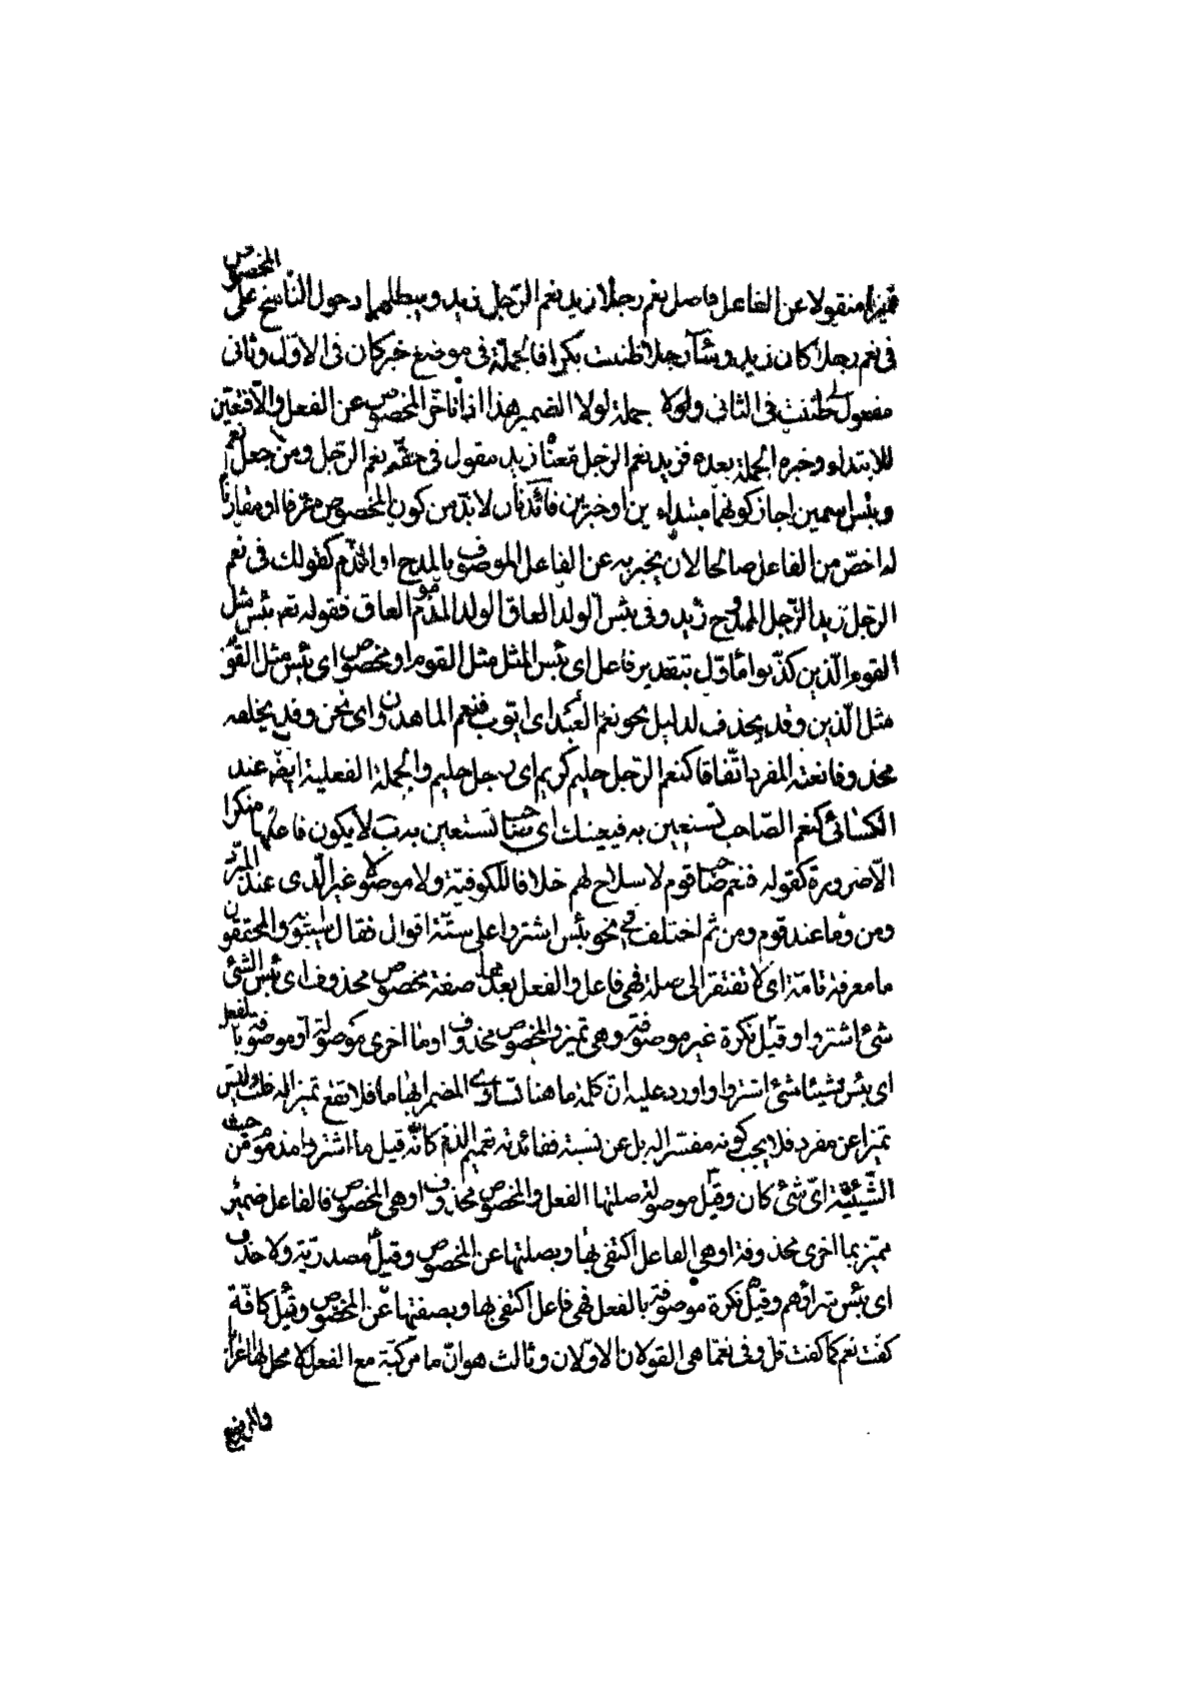 تميزا منقولا عن الفاعل فاصل نعم رجلا زيد نعم الرّجل زيد ويبطلهما دخول النّاسخ على المخصوص
فى نعم رجلا كان زيد وشآ رجلا ظننت بكرا فالجملة فى موضع خبر كان فى الاوّل وثانى
مفعولى ظننت فى الثانى ولولا جملة لولا الضمير هذا اذا تأخّر المخصوص عن الفعل والّا فتعيّن
للابتداء وخبره الجملة بعده فزيد نعم الرّجل معناه زيد مقول فى حقّه نعم الرّجل ومن جعل نعم
وبئس اسمين اجاز كونهما مبتداءين او خبرين فائدتان لا بدّ من كون المخصوص معرفة او مقارنا
له اخصّ من الفاعل صالحا لان يخبر به عن الفاعل الموصوف بالمدح او الذّم كقولك فى نعم
الرّجل زيد الرّجل الممدوح زيد وفى بئس الولد العاق الولد المذموم العاق فقوله تعه بئس مثل
القوم الّذين كذّبوا ماوّل بتقدير فاعل اى بئس المثل مثل القوم او مخصوص اى بئس مثل القوم
مثل الّذين وقد يحذف لدليل نحو نعم العبد اى ايّوب فنعم الماهدون اى نحن وقد يخلفه
محذوفا نعته المفرد اتّفاقا كنعم الرّجل حليم كريم اى رجل حليم والجملة الفعلية ايضا عند
الكسائى كنعم الصّاحب تستعين به فيعينك اى صاحبا تستعين به ب لا يكون فاعلهما منكرا
الّا ضرورة كقوله فنعم صاحب قوم لا سلاح لهم خلافا للكوفيّة ولا موصولا غير الّذى عند المبرّد
ومن وما عند قوم ومن ثم اختلف فى نحو بئس ما اشتروا على ستّة اقوال فقال سيبويه والمحققون
ما معرفة تامّة اى لا تفتقر الى صلة فهى فاعل والفعل بعدها صفة مخصوص محذوف اى بئس الشئ
شئ اشتروا وقيل نكرة غير موصوفة وهى تميز والمخصوص محذوف او ما اخرى موصولة او موصوفة بالفعل
اى بئس شيئا شئ اشتروا واورد عليه انّ كلمة ما هنا تساوى المضمر ابهاما فلا تقع تميزا له قلت وليس
تميزا عن مفرد فلا يجب كونه مفسّرا له بل عن نسبة ففائدته تعميم الذمّ كانّه قيل ما اشتروا مذموم من حيث
الشّيئيّة اىّ شئ كان وقيل موصولة صلتها الفعل والمخصوص محذوف او هى المخصوص فالفاعل ضمير
مميّز بما اخرى محذوفة او هى الفاعل اكتفى بها وبصلتها عن المخصوص وقيل مصدريّة ولا حذف
اى بئس شراؤهم وقيل نكرة موصوفة بالفعل فهى فاعل اكتفى بها وبصفتها عن المخصوص وقيل كافّة
كفّت نعم كما كفت قل وفى نعمّا هى القولان الاوّلان وثالث هو انّ ما مركّبة مع الفعل لا محل لها اعرابا
والمرفوع